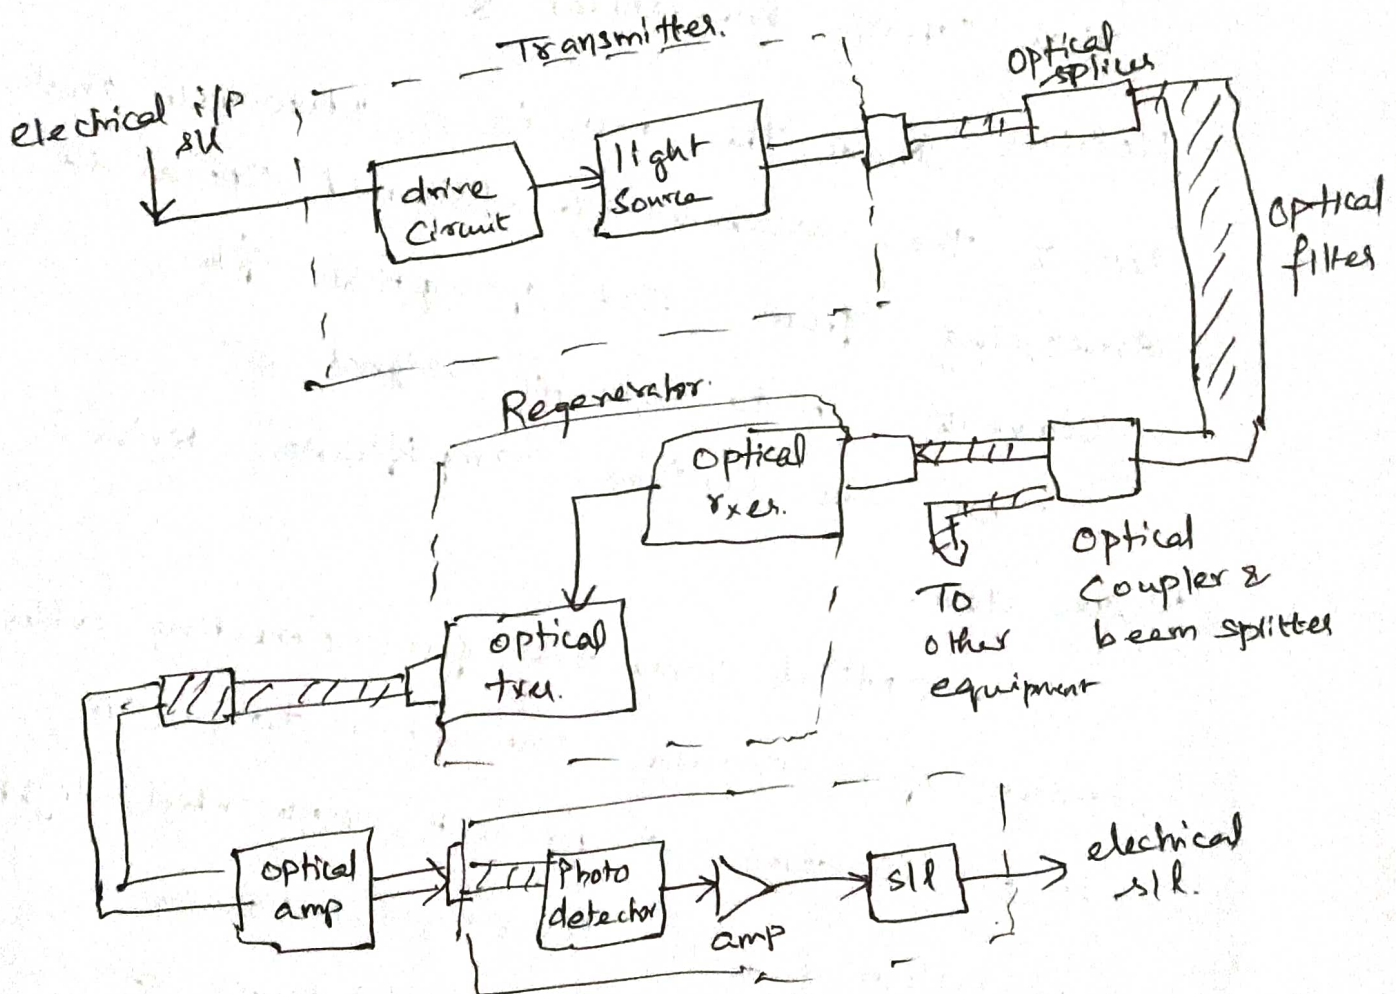 Transmitter.
electrical i/p
sll
drive
circuit
light
source
Optical
splices
optical
filter
Regenerator.
optical
rxer.
optical
txer.
Optical
Coupler &
beam splitter
To
other
equipment
optical
amp
Photo
detector
amp
s/l
electrical
s/l.